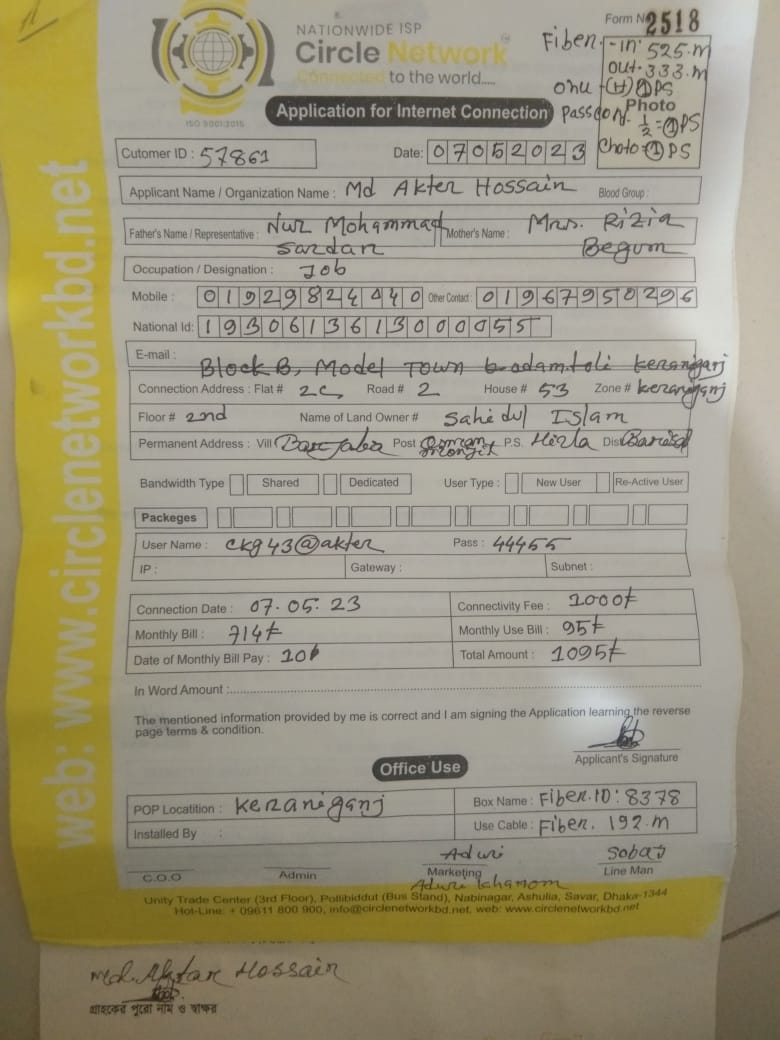 NATIONWIDE ISP
Circle Network
Connected to the world.....
ISO 9001:2015
Form No 2518
Fiber. - in: 525.m
out: 333.m
onu -(H) ① PS
Photo
½ = ① PS
Choto = ① PS
Application for Internet Connection
Cutomer ID : 57861 Date: 07052023
Applicant Name / Organization Name : Md Akter Hossain Blood Group :
Father's Name / Representative : Nur Mohammad Sardar Mother's Name : Mrs. Rizia Begum
Occupation / Designation : Job
Mobile : 01929824440 Other Contact : 01967950296
National Id: 1930613613000055
E-mail :
Block B, Model Town badamtoli keraniganj
Connection Address : Flat # 2C Road # 2 House # 53 Zone # keraniganj
Floor # 2nd Name of Land Owner # Sahidul Islam
Permanent Address : Vill Post P.S. Hizla Dis Barisal
Bandwidth Type Shared Dedicated User Type : New User Re-Active User
Packeges
User Name : ckg43@akter Pass : 44455
IP : Gateway : Subnet :
Connection Date : 07.05.23 Connectivity Fee : 1000/=
Monthly Bill : 714/= Monthly Use Bill : 95/=
Date of Monthly Bill Pay : 10 Total Amount : 1095/=
In Word Amount :
The mentioned information provided by me is correct and I am signing the Application learning the reverse
page terms & condition.
Applicant's Signature
Office Use
POP Locatition : keraniganj Box Name : Fiber.ID: 8378
Installed By : Use Cable : Fiber. 192.m
Aduri
C.O.O Admin Marketing Line Man
Aduri Khanom
Unity Trade Center (3rd Floor), Pollibiddut (Bus Stand), Nabinagar, Ashulia, Savar, Dhaka-1344
Hot-Line: + 09611 800 900, info@circlenetworkbd.net, web: www.circlenetworkbd.net
web: www.circlenetworkbd.net
Md. Aktar Hossain
গ্রাহকের পুরো নাম ও স্বাক্ষর